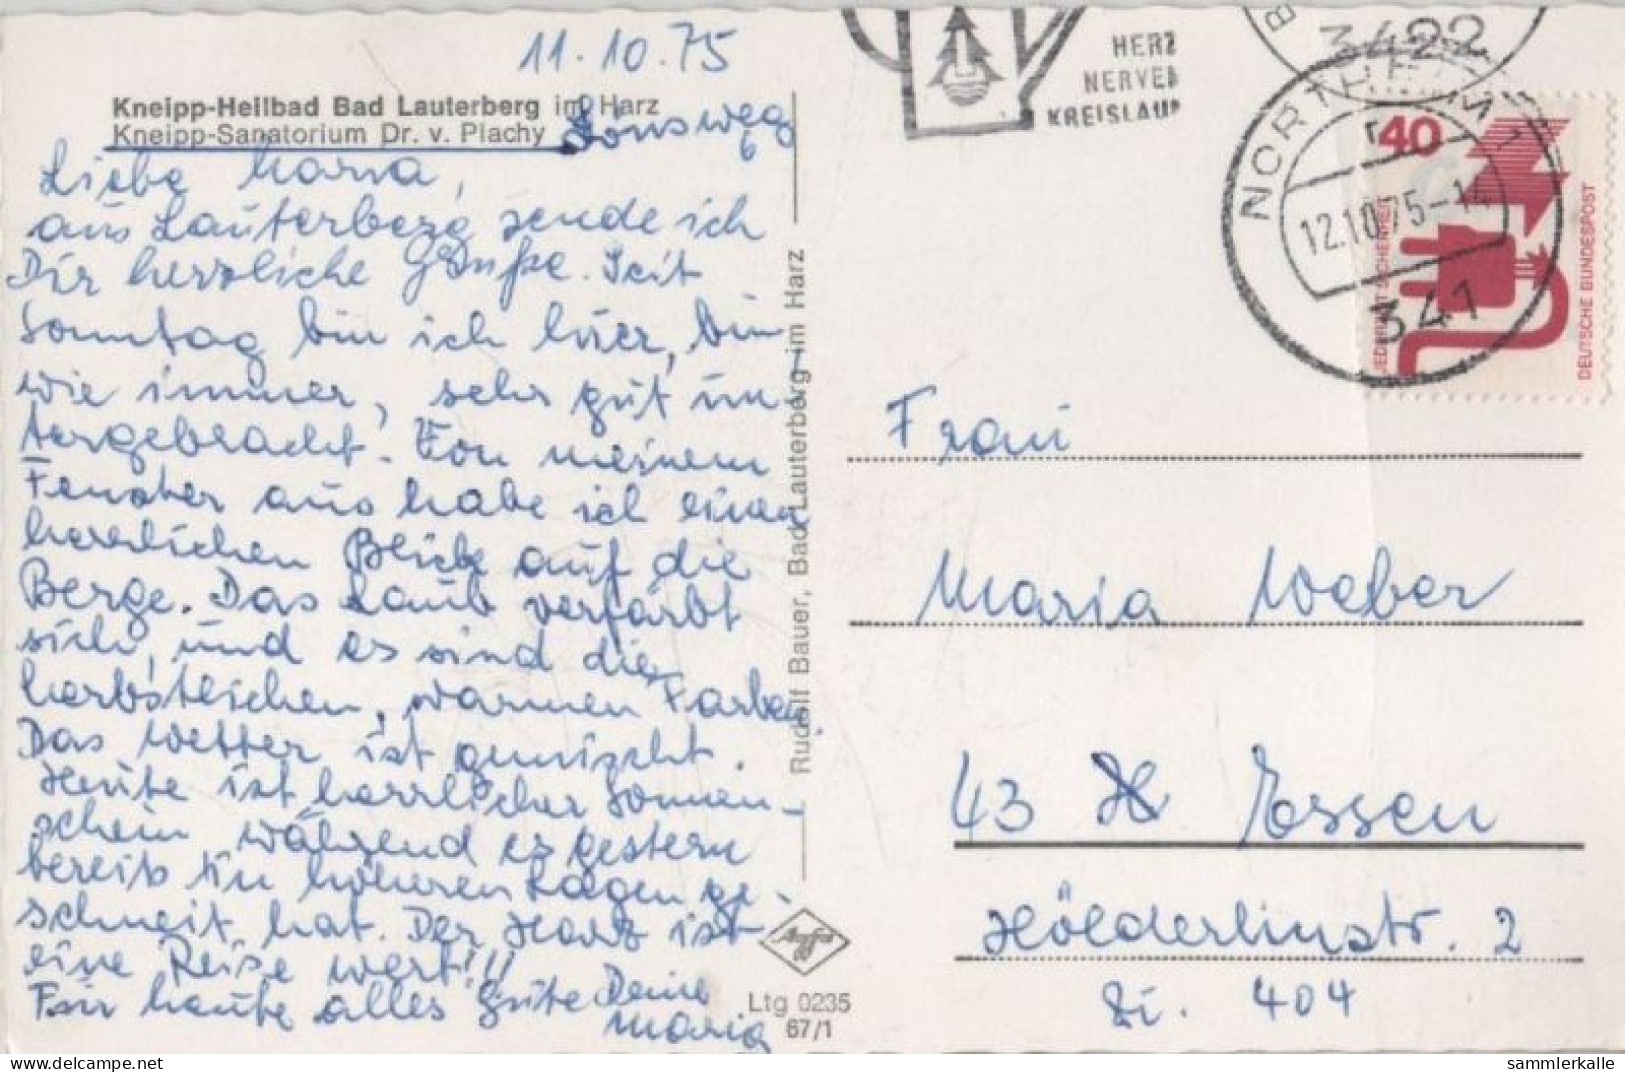 11.10.75
Kneipp-Heilbad Bad Lauterberg im Harz
Kneipp-Sanatorium Dr. v. Plachy
Lönsweg
6
Liebe Maria,
aus Lauterberg sende ich
Dir herzliche Grüße. Seit
Sonntag bin ich hier, bin,
wie immer, sehr gut un-
tergebracht. Von meinem
Fenster aus habe ich einen
herrlichen Blick auf die
Berge. Das Laub verfärbt
sich, und es sind die
herbstlichen, warmen Farben
Das Wetter ist gemischt.
Heute ist herrlicher Sonnen-
schein während es gestern
bereits in höheren Lagen ge-
schneit hat. Der Harz ist
eine Reise wert!!!
Für heute alles Gute Deine
Maria
Rudolf Bauer, Bad Lauterberg im Harz
Agfa
Ltg 0235
67/1
HERZ
NERVEN
KREISLAUF
3422
NORTHEIM 1
12.10.75-14
341
40
JEDERZEIT SICHERHEIT
DEUTSCHE BUNDESPOST
Frau
Maria Weber
43 Essen
Hölderlinstr. 2
Zi. 404
sammlerkalle